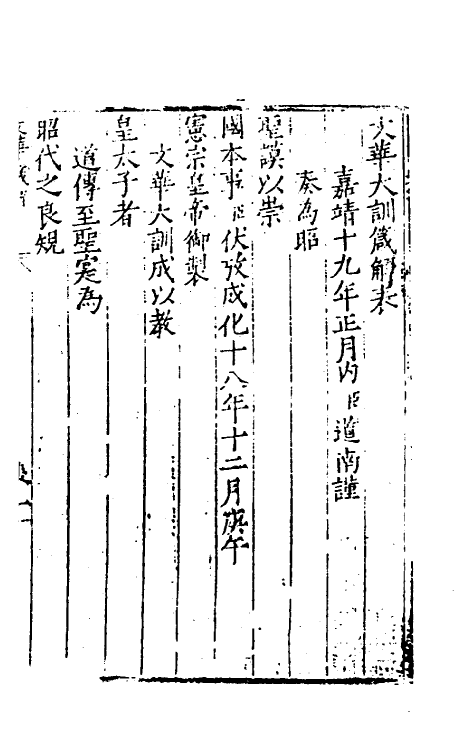 文華大訓箴解表
嘉靖十九年正月內臣道南謹
奏為昭
聖謨以崇
國本事臣伏攷成化十八年十二月庚午
憲宗皇帝御製
文華大訓成以教
皇太子者
道傳至聖寔為
昭代之良規